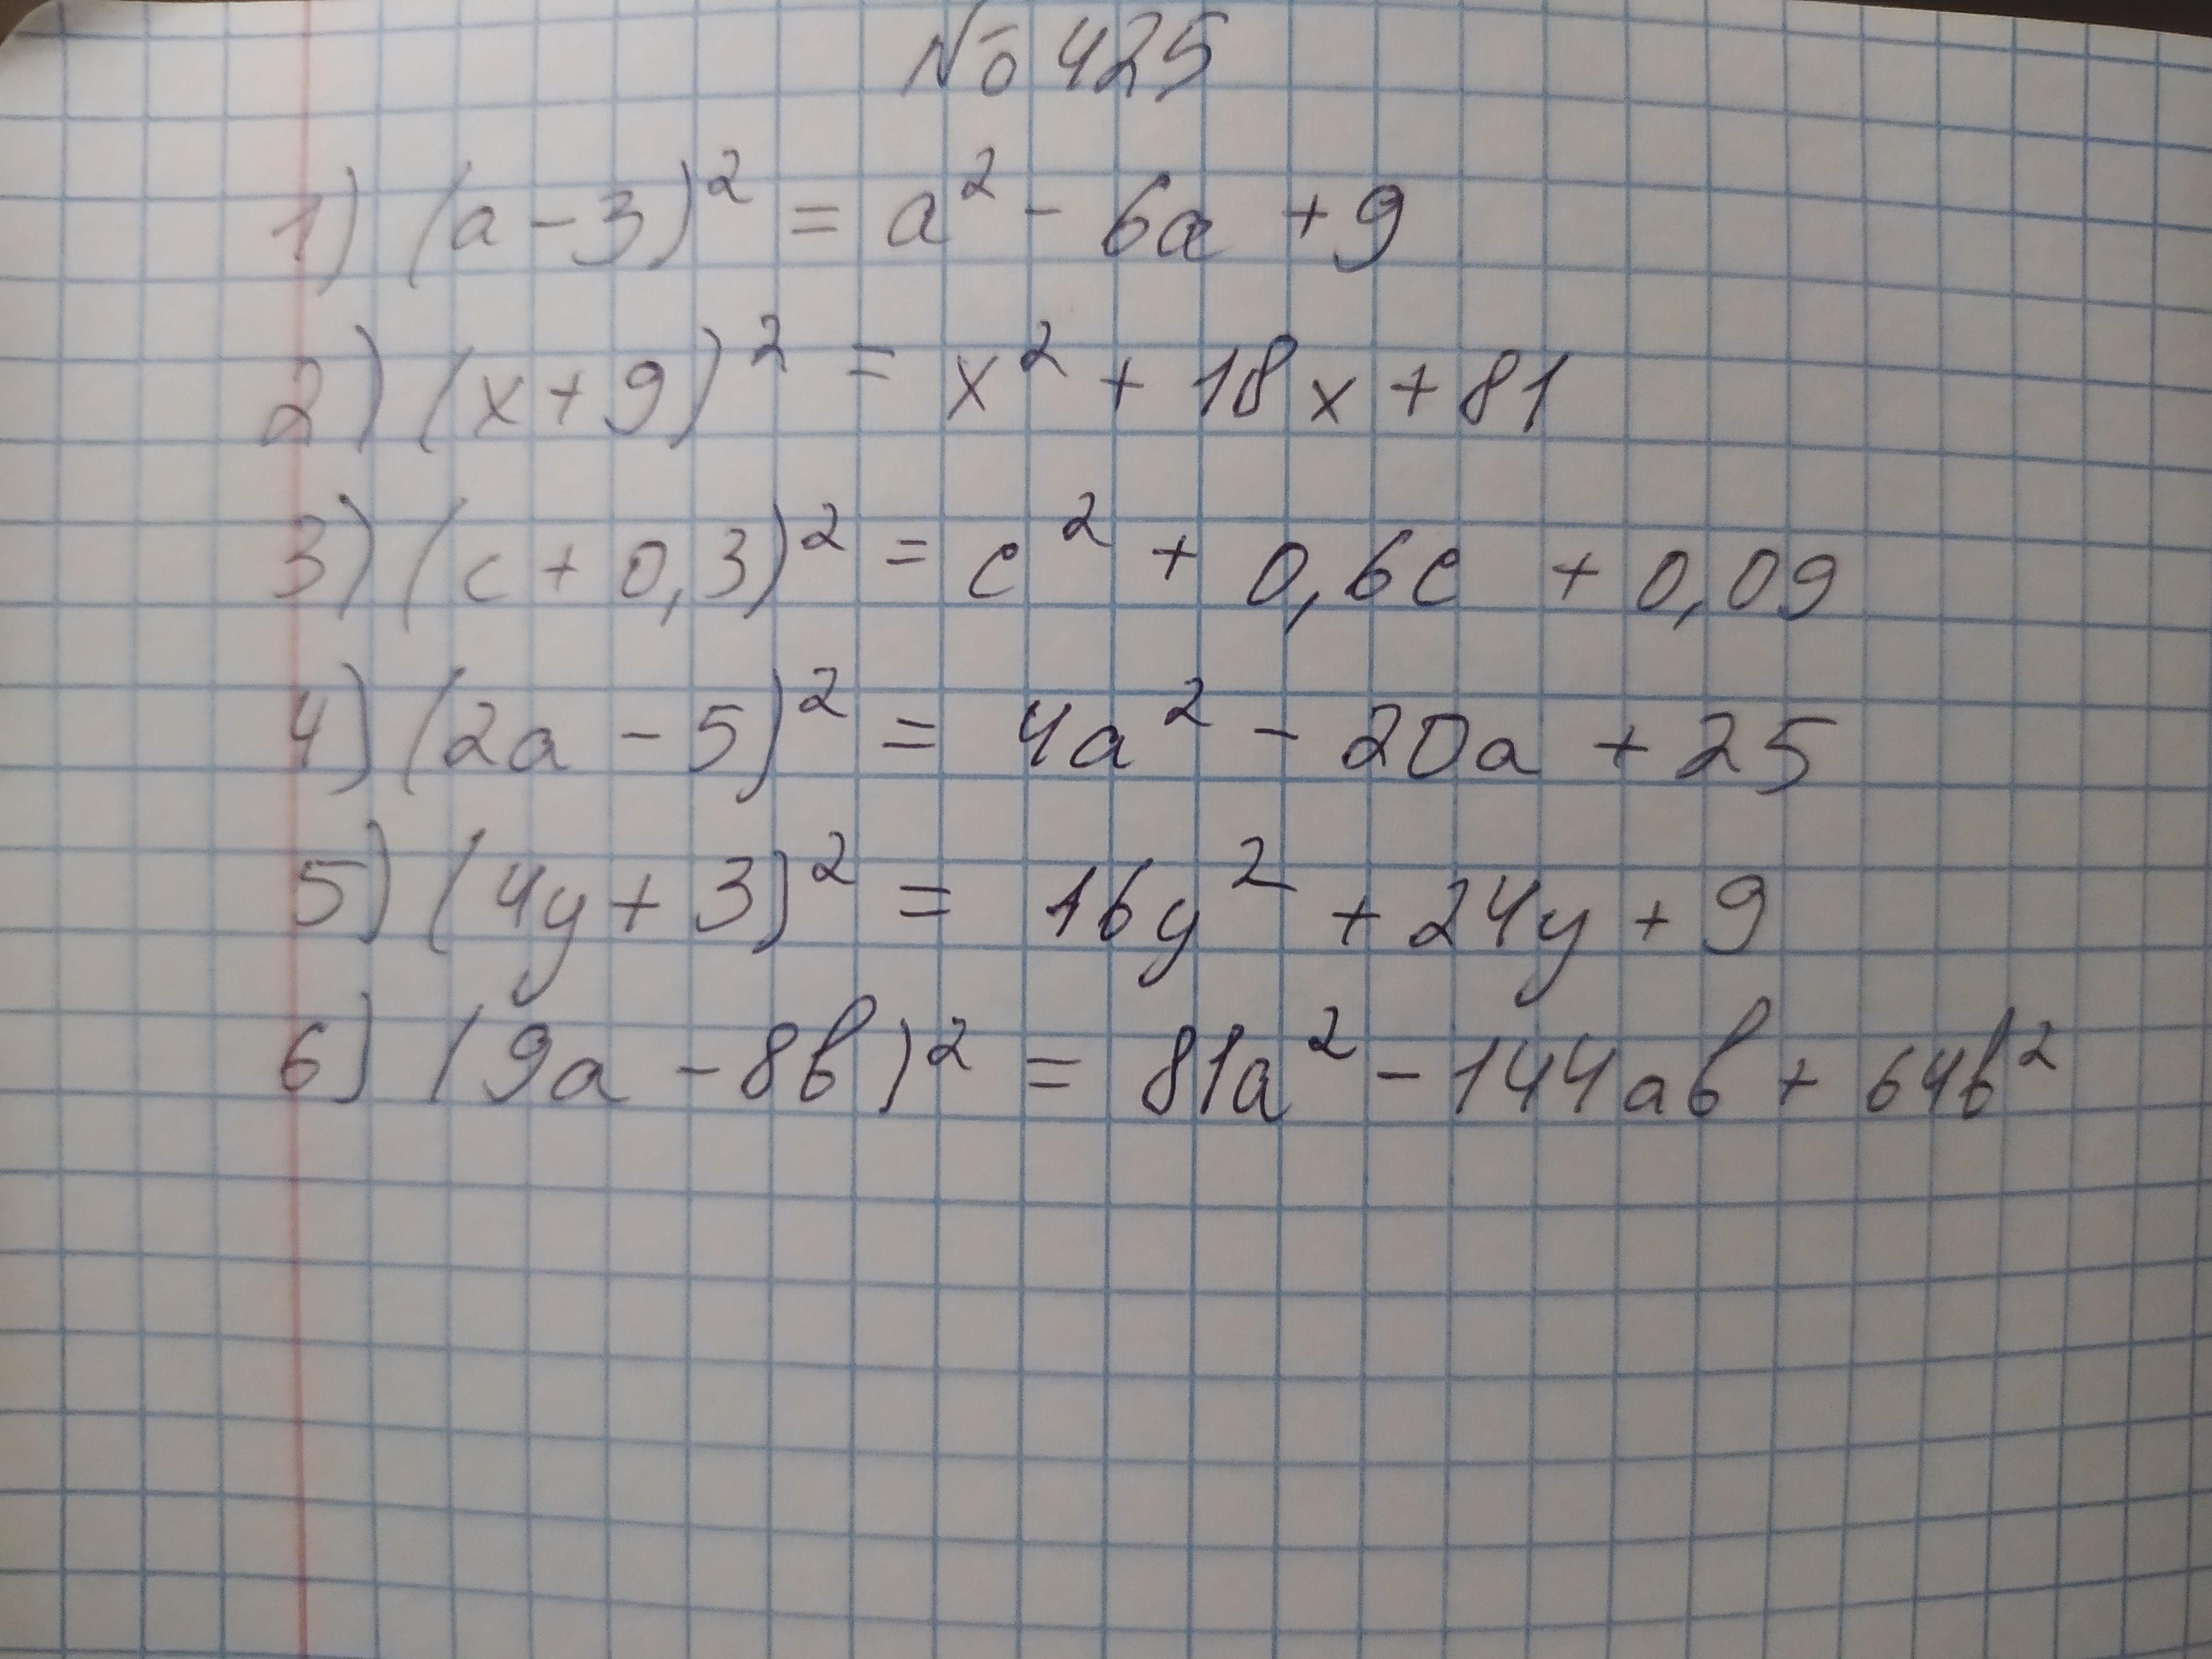 № 425
1) (a - 3)² = a² - 6a + 9
2) (x + 9)² = x² + 18x + 81
3) (c + 0,3)² = c² + 0,6c + 0,09
4) (2a - 5)² = 4a² - 20a + 25
5) (4y + 3)² = 16y² + 24y + 9
6) (9a - 8b)² = 81a² - 144ab + 64b²